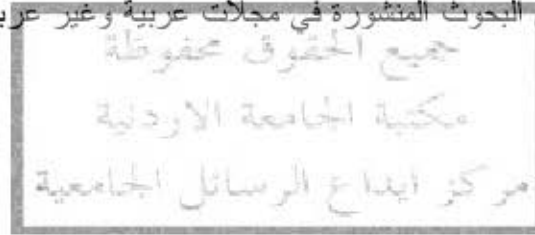 البحوث المنشورة في مجلات عربية وغير
جميع الحقوق محفوظة
مكتبة الجامعة الاردنية
مركز ايداع الرسائل الجامعية